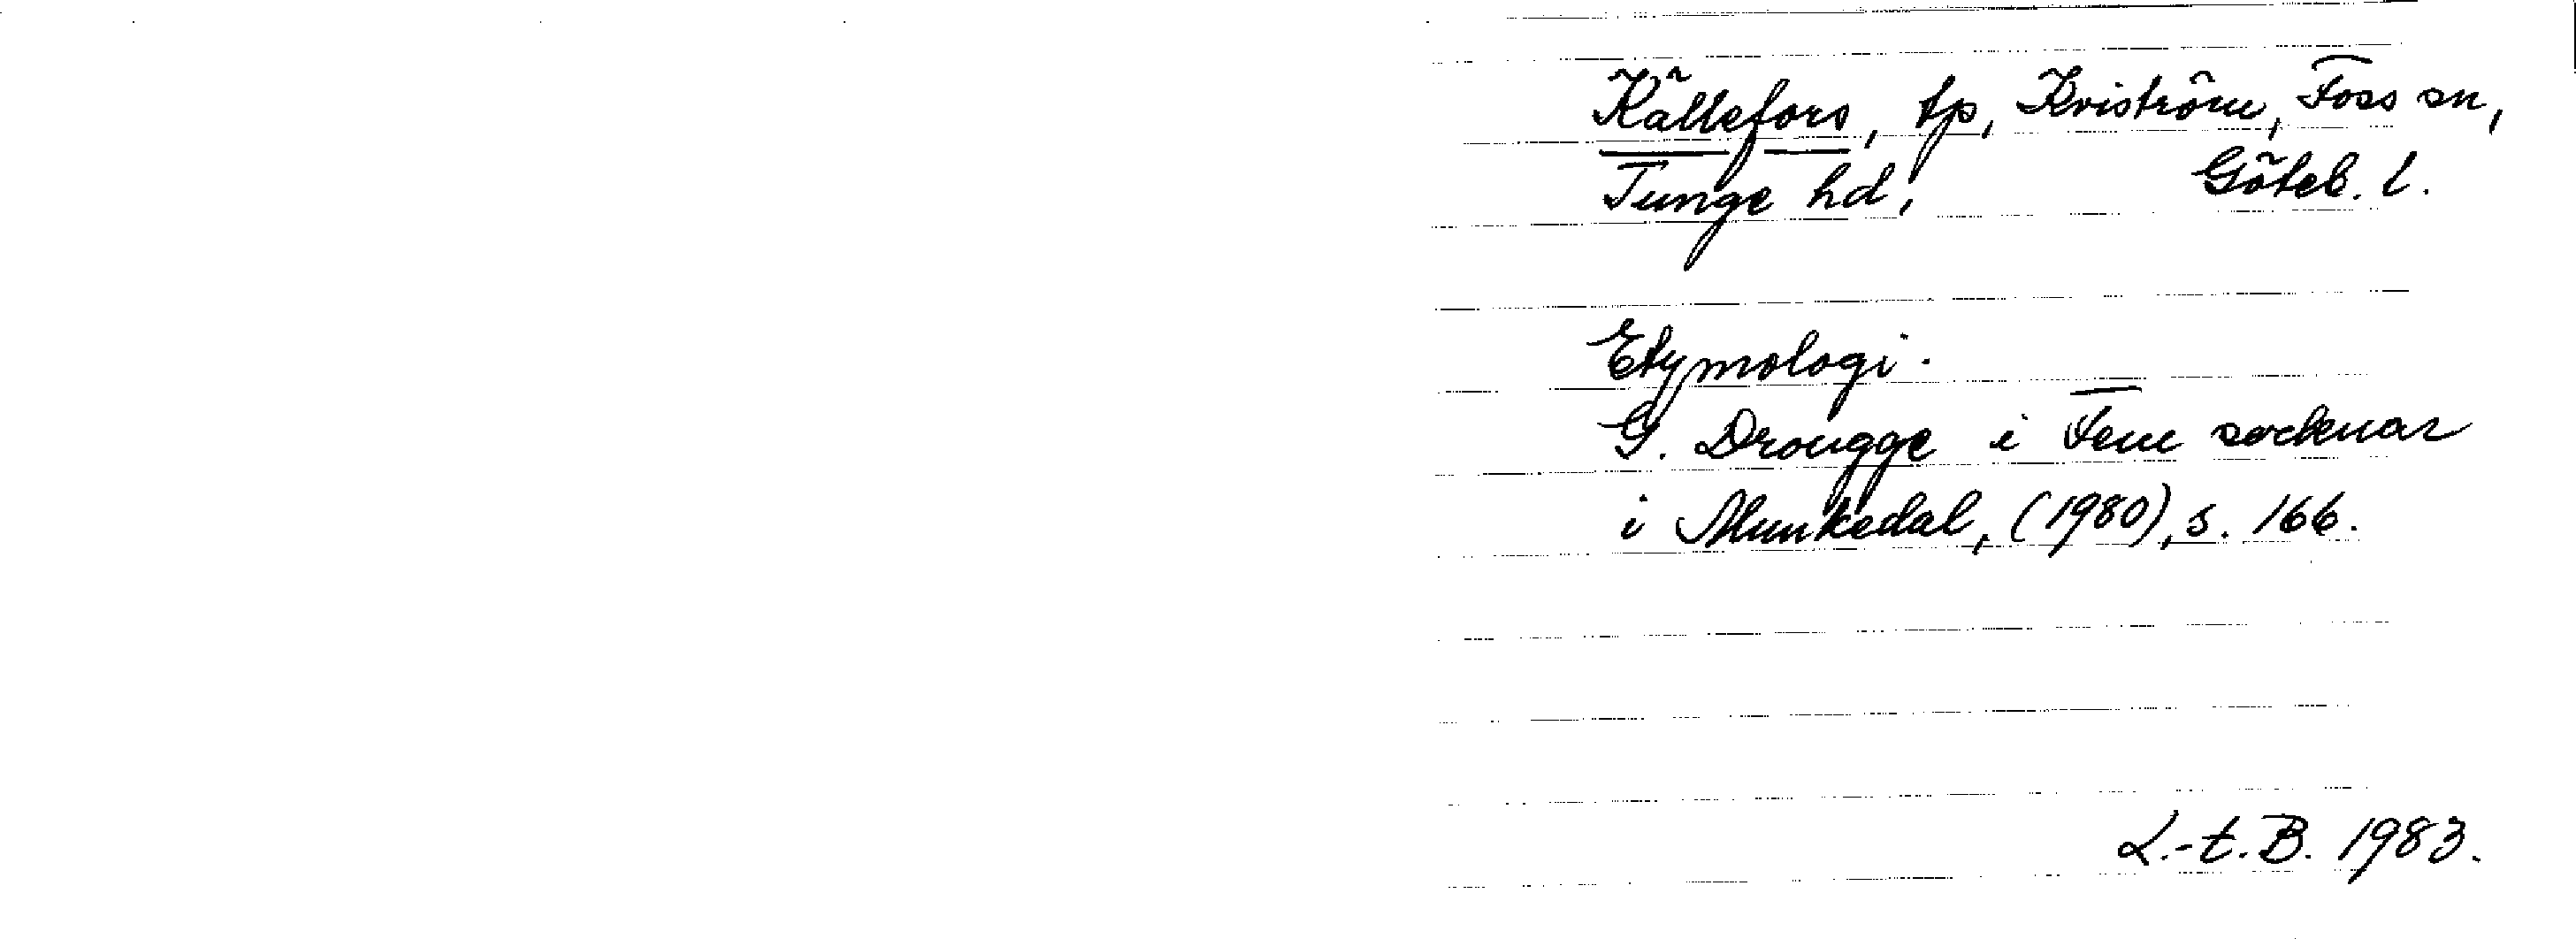 Källefors, tp, Kviström, Foss sn,
Tunge hd, Göteb. l.
Etymologi.
G. Drougge i Fem socknar
i Munkedal, (1980), s. 166.
L.-t. B. 1983.